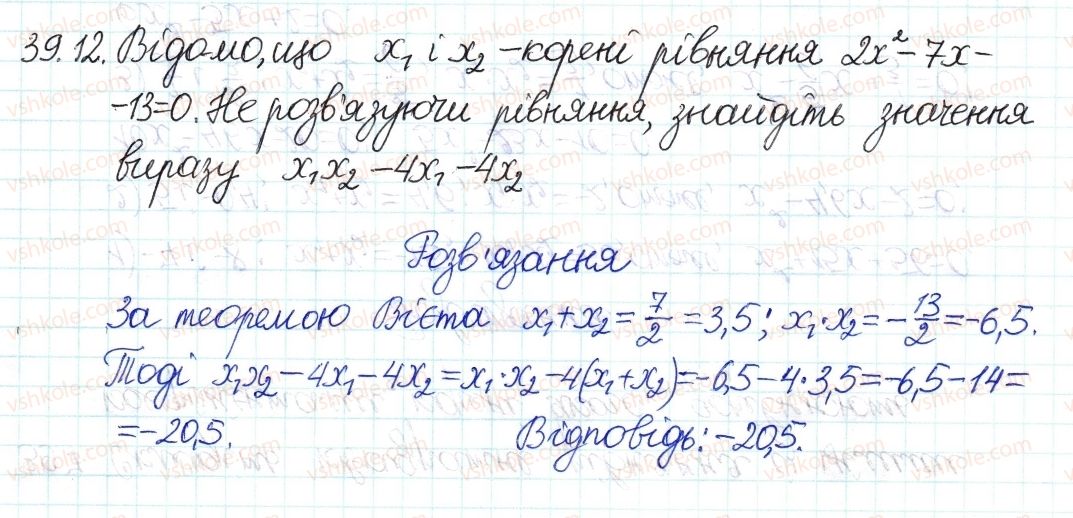 39.12. Відомо, що x₁ і x₂ – корені рівняння 2x² – 7x –
– 13 = 0. Не розв'язуючи рівняння, знайдіть значення
виразу x₁x₂ – 4x₁ – 4x₂
Розв'язання
За теоремою Вієта x₁ + x₂ = 7/2 = 3,5; x₁·x₂ = –13/2 = –6,5.
Тоді x₁x₂ – 4x₁ – 4x₂ = x₁·x₂ – 4(x₁ + x₂) = –6,5 – 4·3,5 = –6,5 – 14 =
= –20,5. Відповідь: –20,5.